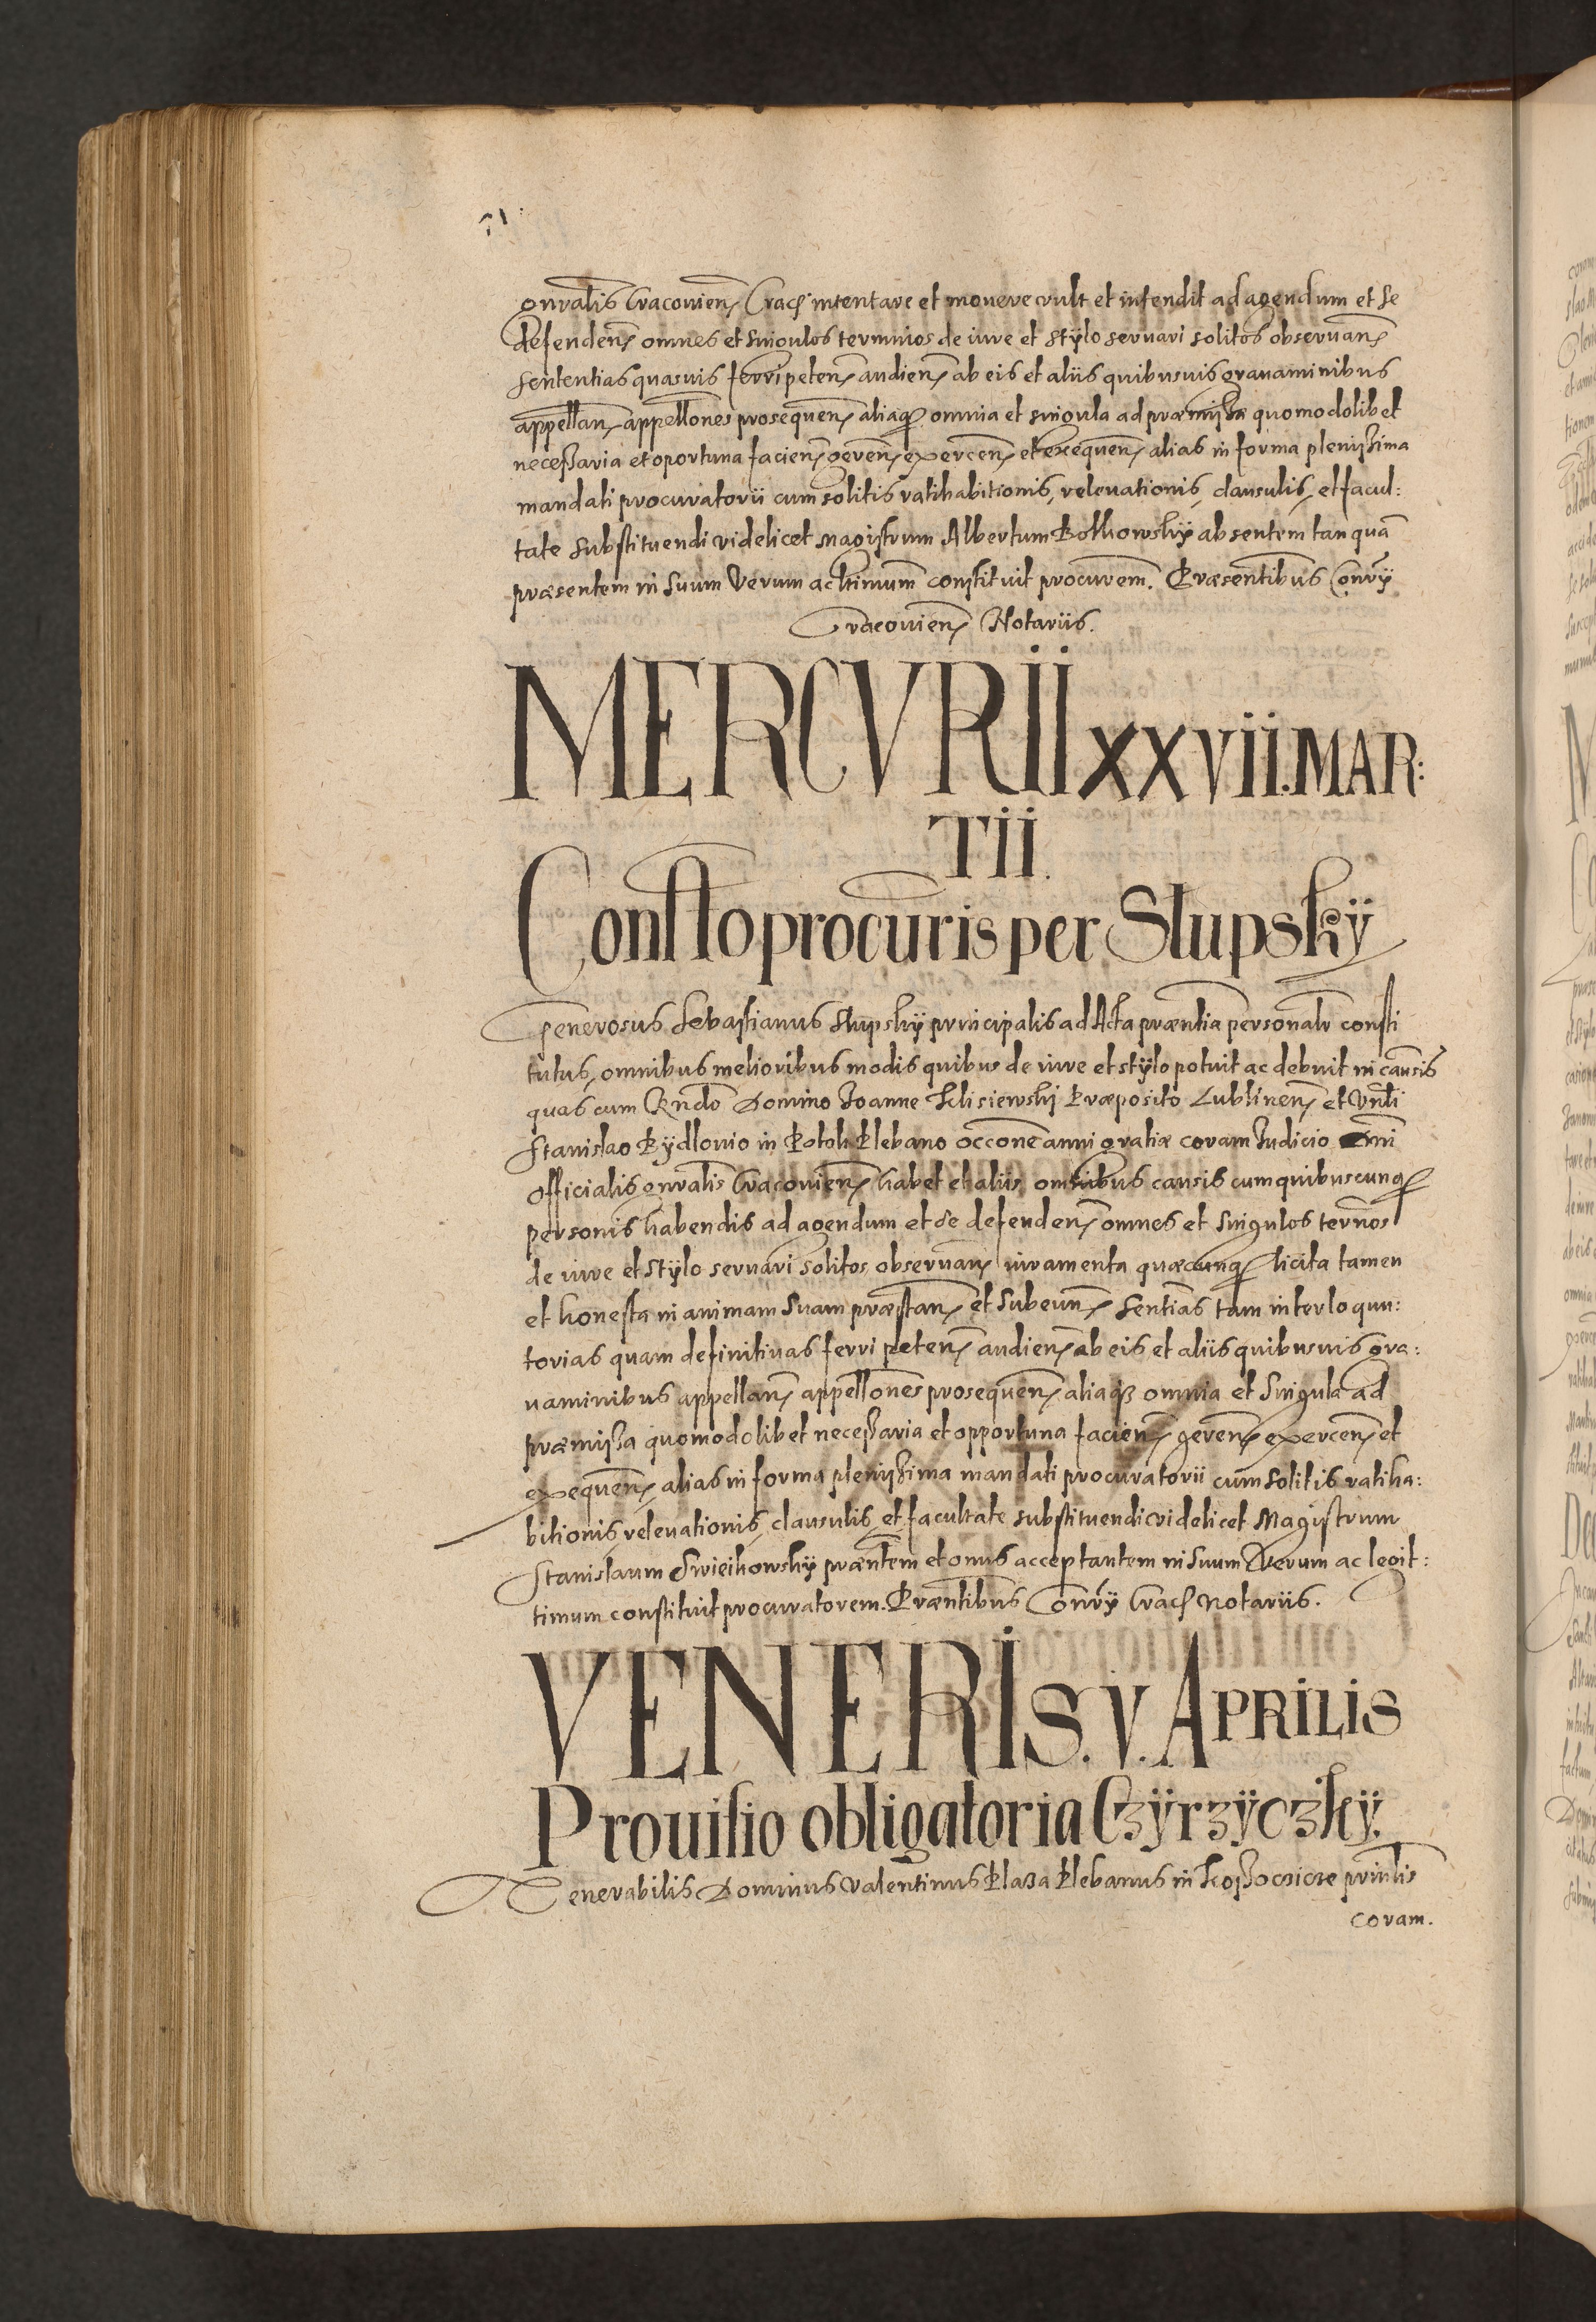 gnralis Cracovien Crac intentare et movere vult et intendit ad agendum et se
defenden omnes et singulos terminos de iure et stÿlo servari solitos observan
sententias quasvis ferri peten audien ab eis et aliis quibusuis grauaminibus
appellan appellones prosequen aliaq omnia et singula ad præmissa quomodolibet
necessaria et oportuna facien geren exercen et exequen alias in forma plenissima
mandati procuratorii cum solitis ratihabitionis, relevationis, clausulis, et facul:
tate substituendi videlicet Magistrum Albertum absentem tanquã
præsentem in suum verum ac ltimum constituit procurem. Præsentibus Consrÿ
Cracouien Notariis.
MERCVRII XXVII. MAR:
TII.
Constto procuris per Slupskÿ
Generosus Sebastianus Slupskÿ principalis ad Acta præntia personalr consti
tutus, omnibus melioribus modis quibus de iure et stÿlo potuit ac debuit in causis
quas cum Rndo Domino Joanne Præposito Lublinen et Vnli
Stanislao Rÿdlonio in Potok Plebano occone anni gratiæ coram Iudicio Dni
Officialis gnralis Cracovien habet et aliis omnibus causis cum quibuscunq
personis habendis ad agendum et se defenden omnes et singulos termos
de iure et stÿlo servari solitos observan iuramenta quæcunq licita tamen
et honesta in animam suam præstan et subeun sentias tam interloquu:
torias quam definitivas ferri peten audien ab eis et aliis quibusuis gra:
uaminibus appellan appellones prosequen aliaq omnia et singula ad
præmissa quomodolibet necessaria et opportuna facien geren exercen et
exequen alias in forma plenissima mandati procuratorii cum solitis ratiha:
bitionis, relevationis, clausulis, et facultate substituendi videlicet Magistrum
Stanislaum præntem et onus acceptantem in suum Verum ac legit:
timum constituit procuratorem. Præntibus Consrÿ Crac Notariis.
VENERIS. V. APRILIS
Prouisio obligatoria Czÿrzÿczkÿ.
Venerabilis Dominus Valentinus Plaza Plebanus in prinlis
coram.